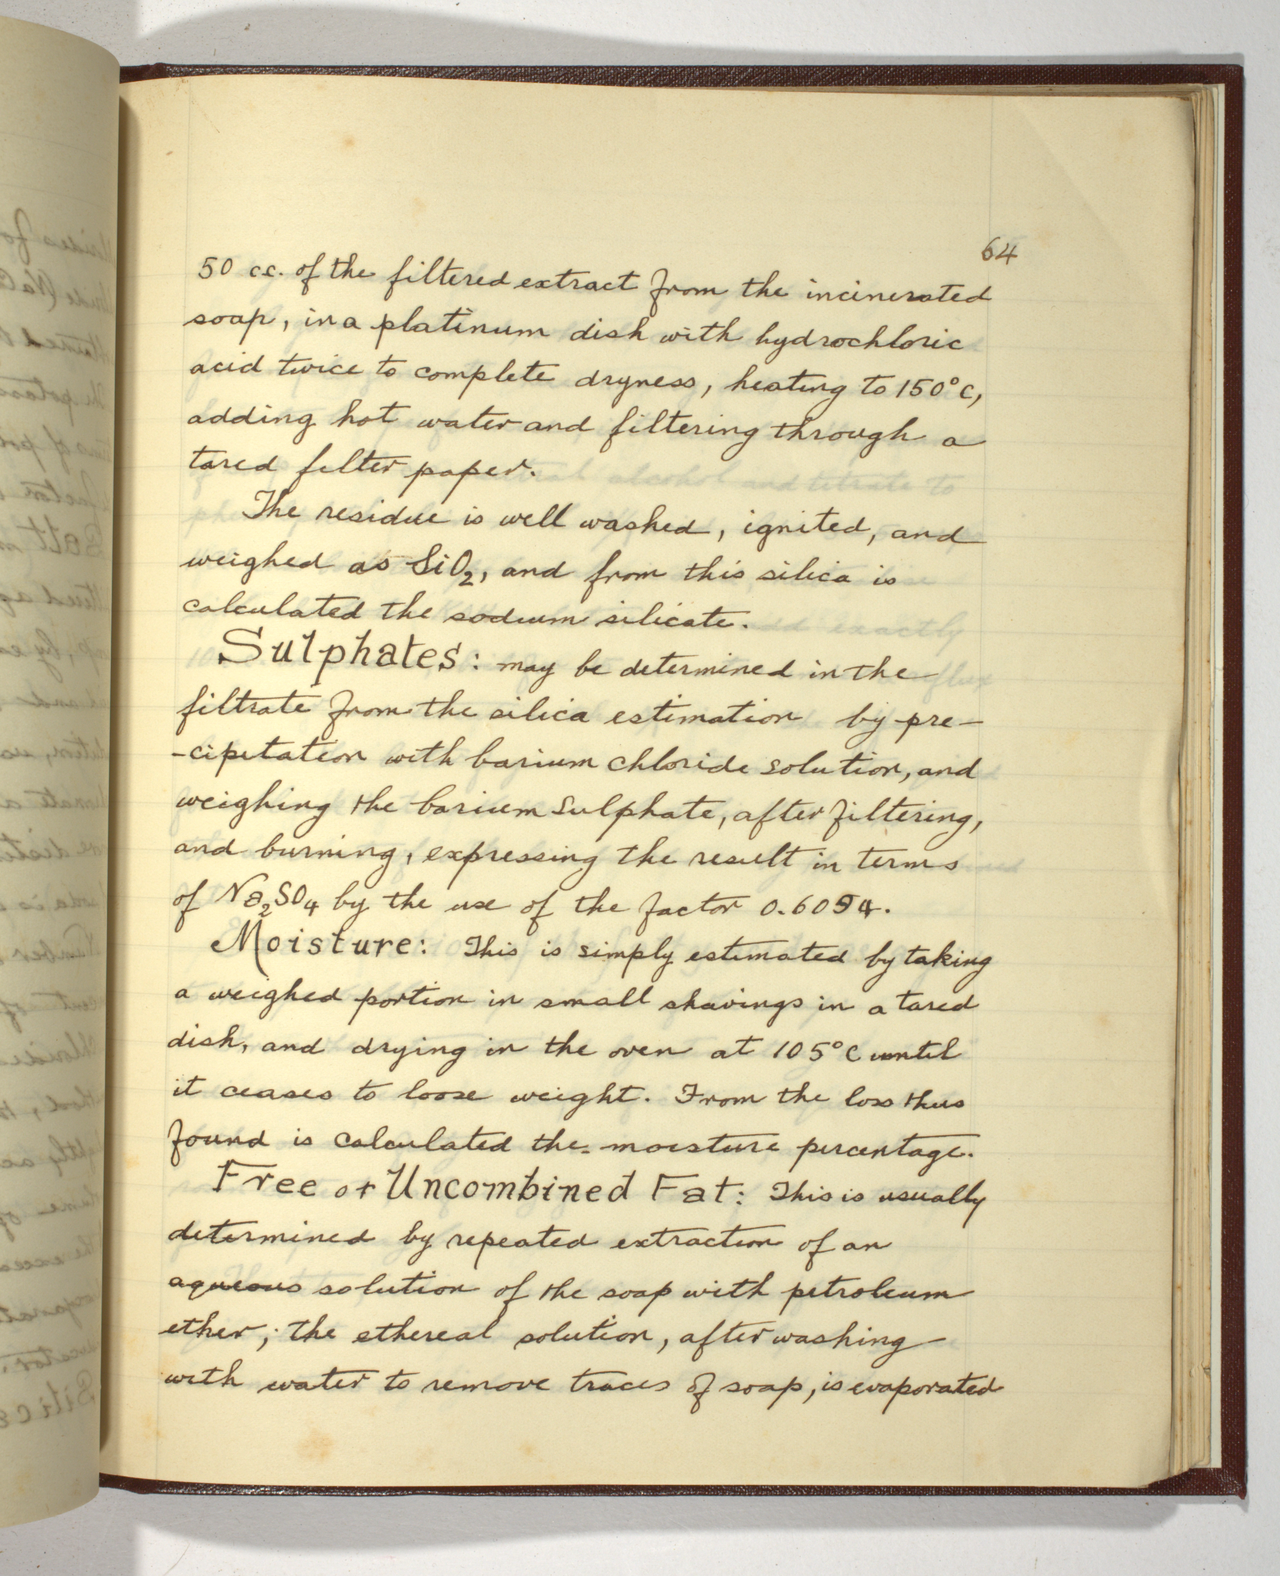 64
50 cc. of the filtered extract from the incinerated
soap, in a platinum dish with hydrochloric
acid twice to complete dryness, heating to 150°C,
adding hot water and filtering through a
tared filter paper.
The residue is well washed, ignited, and
weighed as SiO2, and from this silica is
calculated the sodium silicate.
Sulphates: may be determined in the
filtrate from the silica estimation by pre-
-cipitation with barium chloride solution, and
weighing the barium sulphate, after filtering,
and burning, expressing the result in terms
of Na2SO4 by the use of the factor 0.6094.
Moisture: This is simply estimated by taking
a weighed portion in small shavings in a tared
dish, and drying in the oven at 105°C until
it ceases to loose weight. From the loss thus
found is calculated the moisture percentage.
Free or Uncombined Fat: This is usually
determined by repeated extraction of an
aqueous solution of the soap with petroleum
ether; the ethereal solution, after washing
with water to remove traces of soap, is evaporated